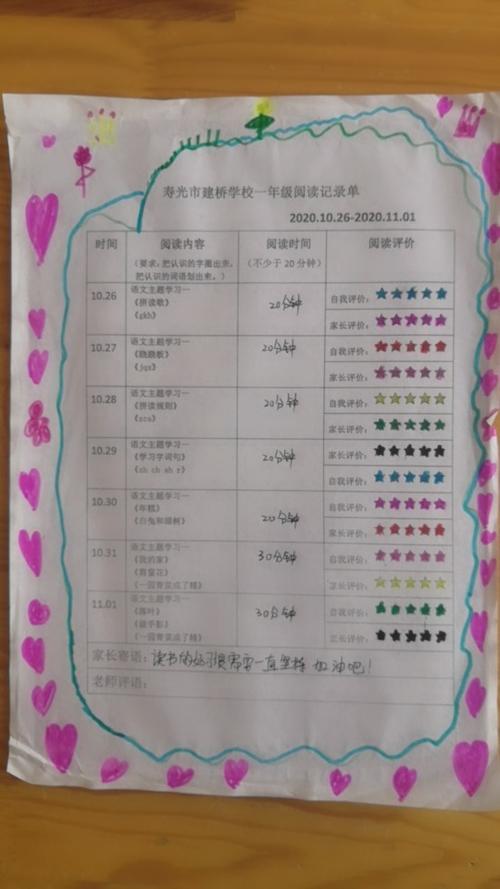 寿光市建桥学校一年级阅读记录单
2020.10.26-2020.11.01
时间 阅读内容 阅读时间 阅读评价
（要求：把认识的字圈出来，把认识的词语划出来。） （不少于20分钟）
10.26 语文主题学习一 20分钟 自我评价：
《拼读歌》
《gkh》 家长评价：
10.27 语文主题学习一 20分钟 自我评价：
《jqx》 家长评价：
10.28 语文主题学习一 20分钟 自我评价：
《拼读规则》
《zcs》 家长评价：
10.29 语文主题学习一 20分钟 家长评价：
《学习字词句》
《zh ch sh r》 自我评价：
10.30 语文主题学习一 20分钟 自我评价：
《年糕》
家长评价：
10.31 语文主题学习一 30分钟 自我评价：
《我的家》
《剪窗花》
《一园青菜成了精》 家长评价：
11.01 语文主题学习一 30分钟 自我评价：
《落叶》
《做手影》
《一园青菜成了精》 家长评价：
家长寄语：读书的好习惯需要一直坚持 加油吧！
老师评语：